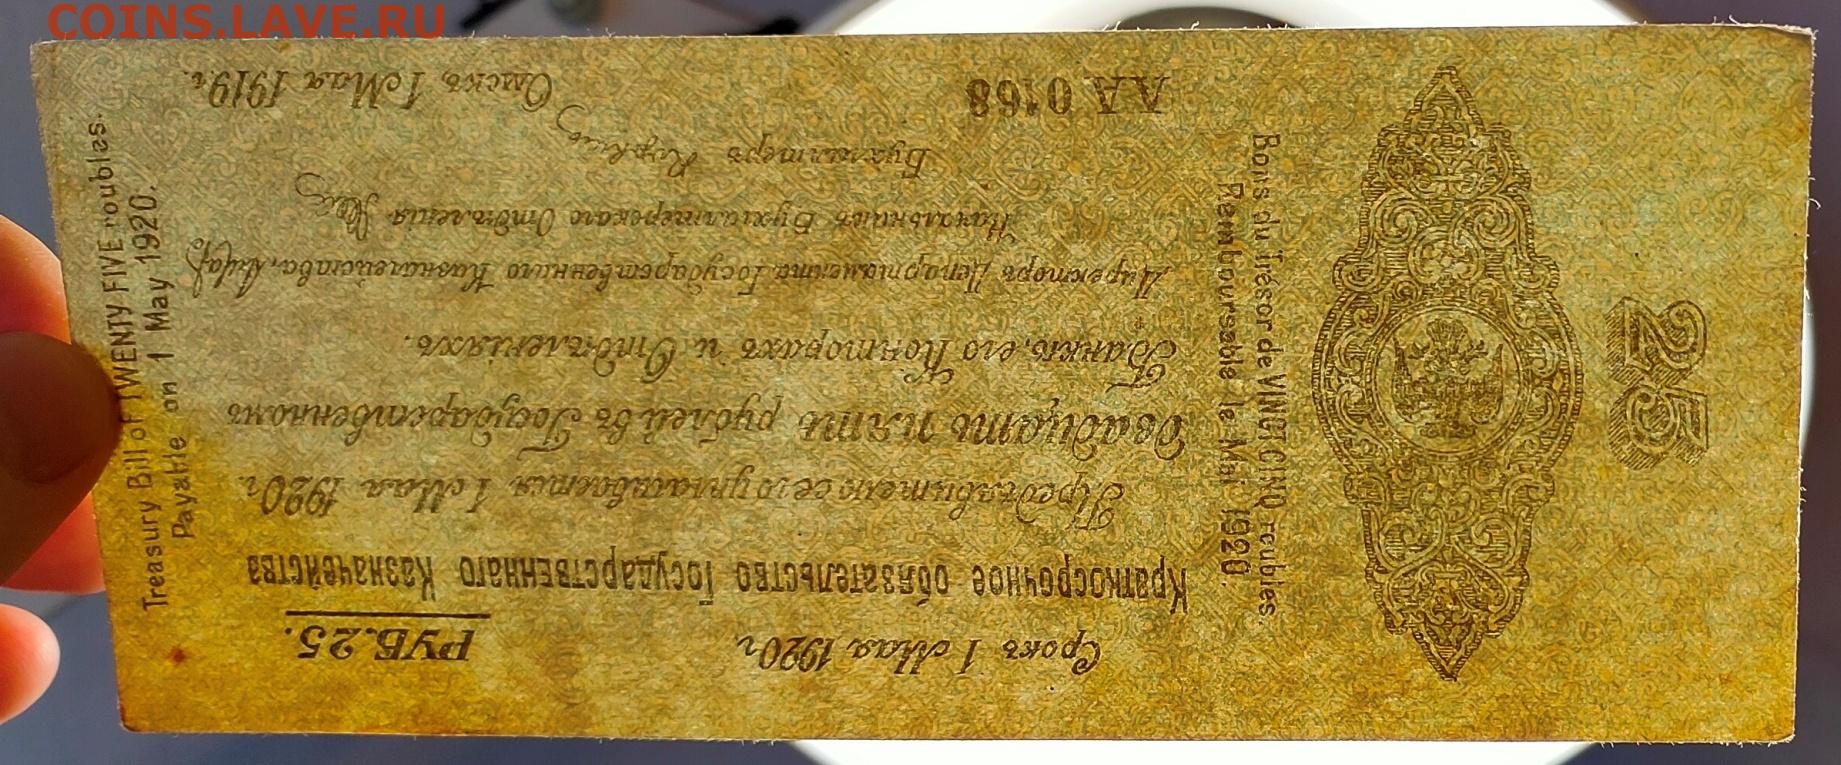 COINS.LAVE.RU
Срокъ 1 Мая 1920 г.
РУБ. 25.
Краткосрочное обязательство Государственнаго Казначейства
Предъявителю сего уплачивается 1 Мая 1920 г.
двадцать пять рублей въ Государственномъ
Банкѣ, его Конторахъ и Отдѣленіяхъ.
Директоръ Департамента Государственнаго Казначейства,
Начальникъ Бухгалтерскаго Отдѣленія
Бухгалтеръ
АА 0168
Омскъ, 1 Мая 1919 г.
25
Bons du Trésor de VINGT CINQ roubles.
Remboursable le 1 Mai 1920.
Treasury Bill of TWENTY FIVE roubles.
Payable on 1 May 1920.